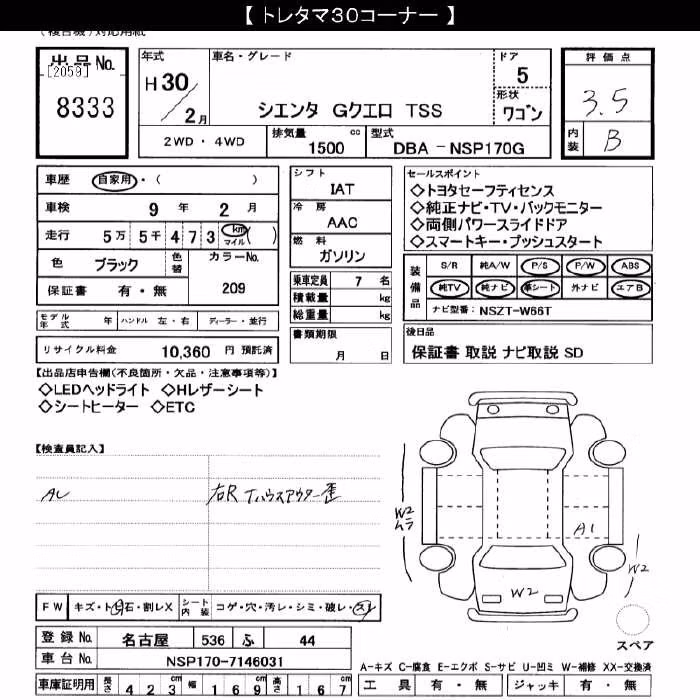 【 トレタマ30コーナー 】
(複合機)対応用紙
出品No.
[2059]
8333
年式
H 30/2月
車名・グレード
シエンタ Gクエロ TSS
ドア
5
形状
ワゴン
評価点
3.5
内装
B
2WD・4WD
排気量
1500 cc
型式
DBA－NSP170G
車歴 自家用・( )
車検 9年 2月
走行 5万 5千 4 7 3 km マイル ( )
色 ブラック 色替 カラーNo.
保証書 有・無 209
モデル年式 年 ハンドル 左・右 ディーラー・並行
リサイクル料金 10,360 円 預託済
シフト
IAT
冷房
AAC
燃料
ガソリン
乗車定員 7 名
積載量 kg
総重量 kg
書類期限
月 日
セールスポイント
◇トヨタセーフティセンス
◇純正ナビ・TV・バックモニター
◇両側パワースライドドア
◇スマートキー・プッシュスタート
装備品
S/R 純A/W P/S P/W ABS
純TV 純ナビ 革シート 外ナビ エアB
ナビ型番: NSZT-W66T
後日品
保証書 取説 ナビ取説 SD
【出品店申告欄(不良箇所・欠品・注意事項等)】
◇LEDヘッドライト ◇Hレザーシート
◇シートヒーター ◇ETC
【検査員記入】
右R Tハウスアウター歪
W2
ムラ
A1
W2
W2
スペア
FW キズ・ト石・割レX シート内装 コゲ・穴・汚レ・シミ・破レ・スレ
登録No. 名古屋 536 ふ 44
車台No. NSP170-7146031
車庫証明用 長さ 4 2 3 cm 幅 1 6 9 cm 高さ 1 6 7 cm
A-キズ C-腐食 E-エクボ S-サビ U-凹ミ W-補修 XX-交換済
工具 有・無 ジャッキ 有・無